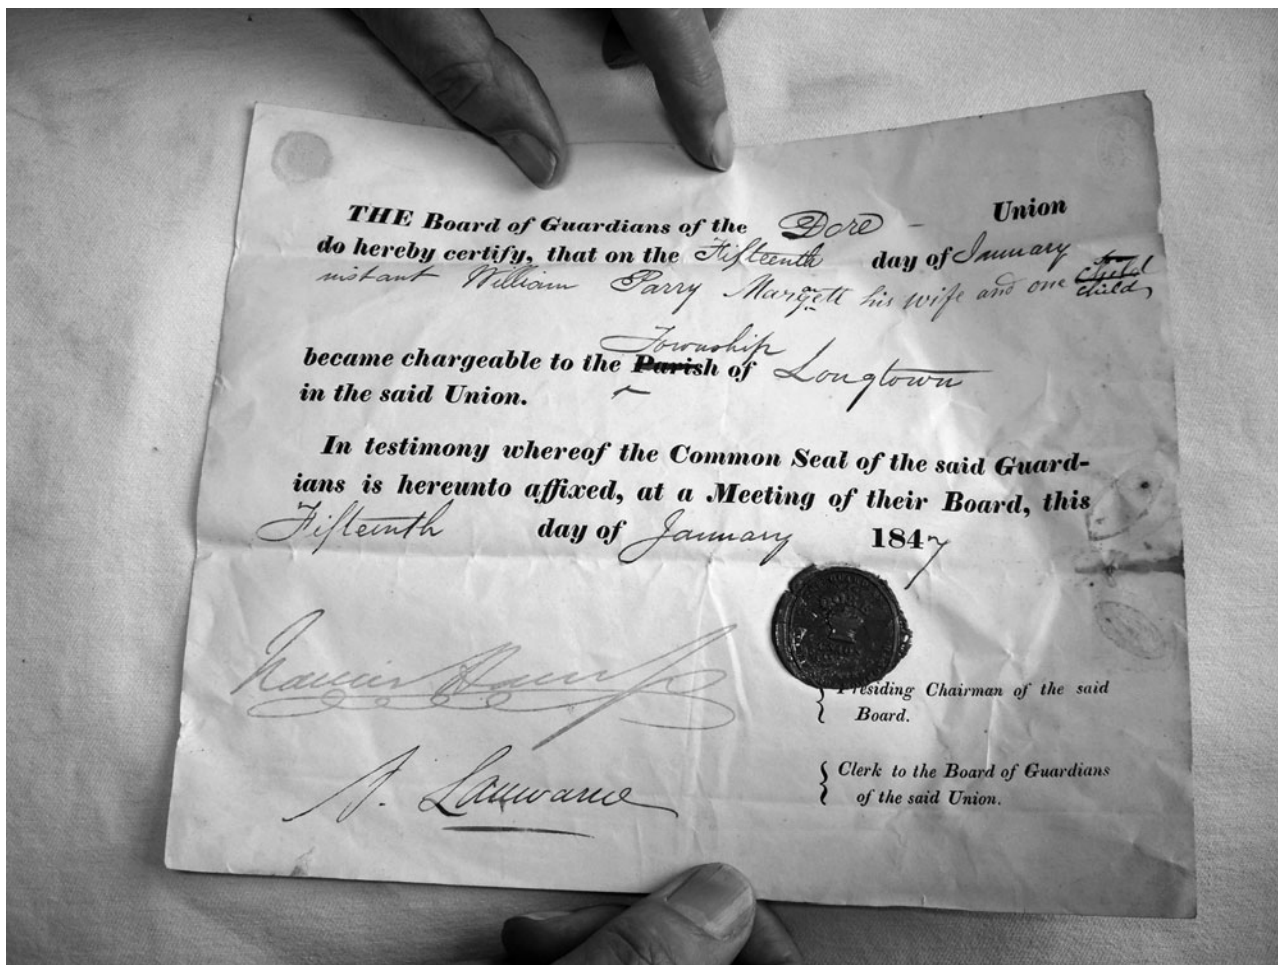 THE Board of Guardians of the Dore - Union
do hereby certify, that on the Fifteenth day of January
instant William Parry Margaret his wife and one child
Township
became chargeable to the Parish of Longtown
in the said Union.
In testimony whereof the Common Seal of the said Guard-
ians is hereunto affixed, at a Meeting of their Board, this
Fifteenth day of January 1847
Presiding Chairman of the said
Board.
Clerk to the Board of Guardians
of the said Union.